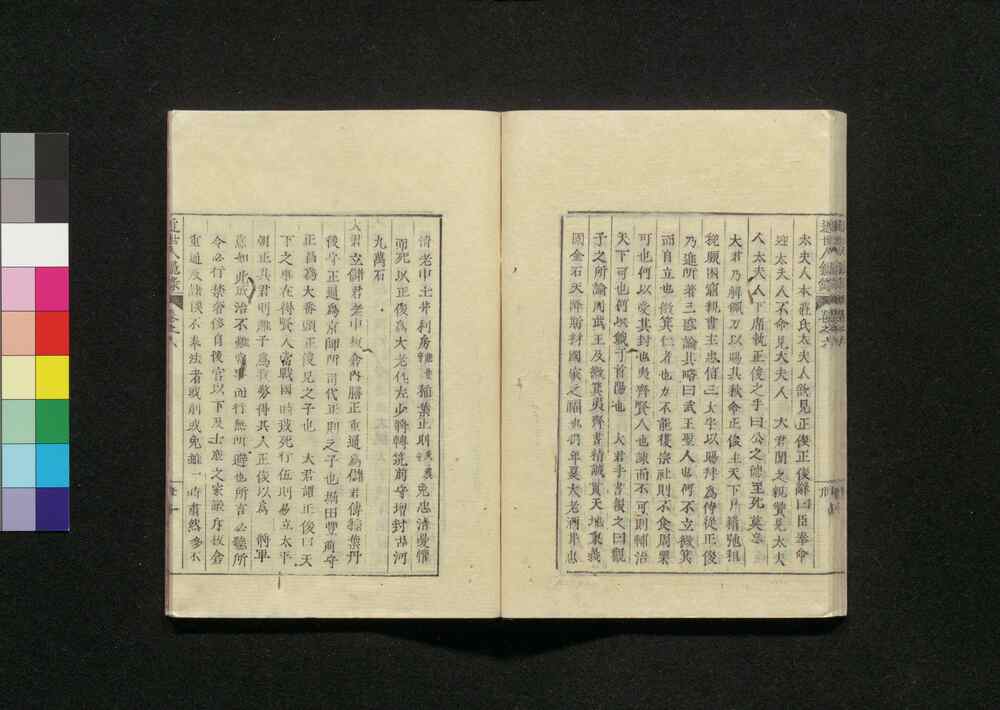 太夫人本莊氏太夫人欲見正俊正俊辭曰臣奉命
太夫人不命見大夫人 大君聞之親贊見太夫
人太夫人下席執正俊之手曰公之德至死莫忘
大君乃解佩刀以賜其秋命正俊主天下戶籍弛租
稅賑困窮親書主忠信三大字以賜拜為侍從正俊
乃進所著三惑論其略曰武王聖人也何不立微箕
而自立也微箕仁者也力不能復宗社則不食周粟
可也何以受其封也夷齊賢人也諫而不可則輔治
天下可也何 餓于首陽也 大君手書報之曰觀
子之所論周武王及微箕夷齊書精誠貫天地眾義
國金石天降斯材國家之福也明年夏大老酒井忠
清老中土井利房稻葉正則免忠清憂懼
而死以正俊為大老代左少將轉筑前守增封古河
九萬石
大君立儲君老中板倉內膳正重通為儲君傅稻葉丹
後守正通為京師所司代正則之子也堀田豐前守
正 為大番頭正俊兄之子也 大君謂正俊曰天
下之事在得賢人當戰國時我死行伍則易立太平
朝正其君明離子為 勞得其人正俊以為 將軍
意如此政治不難 而行無所避也所言必聽所
令必行禁奢侈自後宮以下及士庶之家 序故舍
重道及諸侯不奉法者或削或免雖一時肅然多不
近世人鏡錄
卷之六